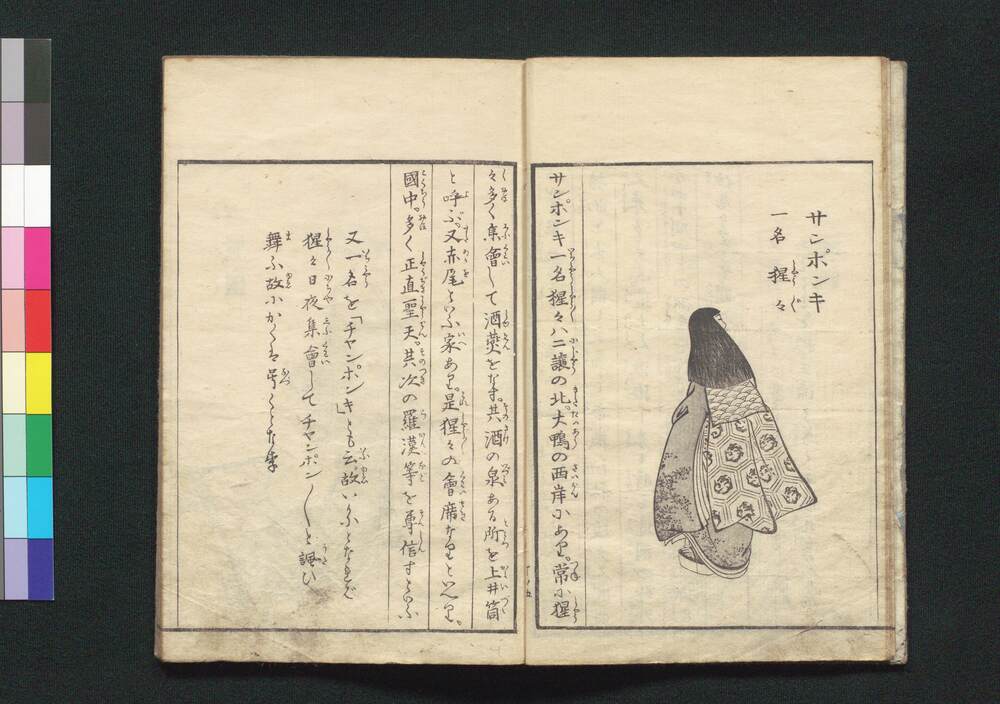 サンポンキ
一名 猩々
サンポンキ一名猩々ハ二譲の北。大鴨の西岸にあり。常に猩
々多く集會して酒燕をなす。其酒の泉ある所を上井筒
と呼ぶ。又赤尾といふ家あり。是猩々の會席なりといへり。
國中。多く正直聖天。其次の羅漢等を尊信すといふ
又一名を「チャンポンキ」とも云。故いかにとなれば
猩々日夜集會してチャンポン〱と諷ひ
舞ふ故にかくは号くとなん